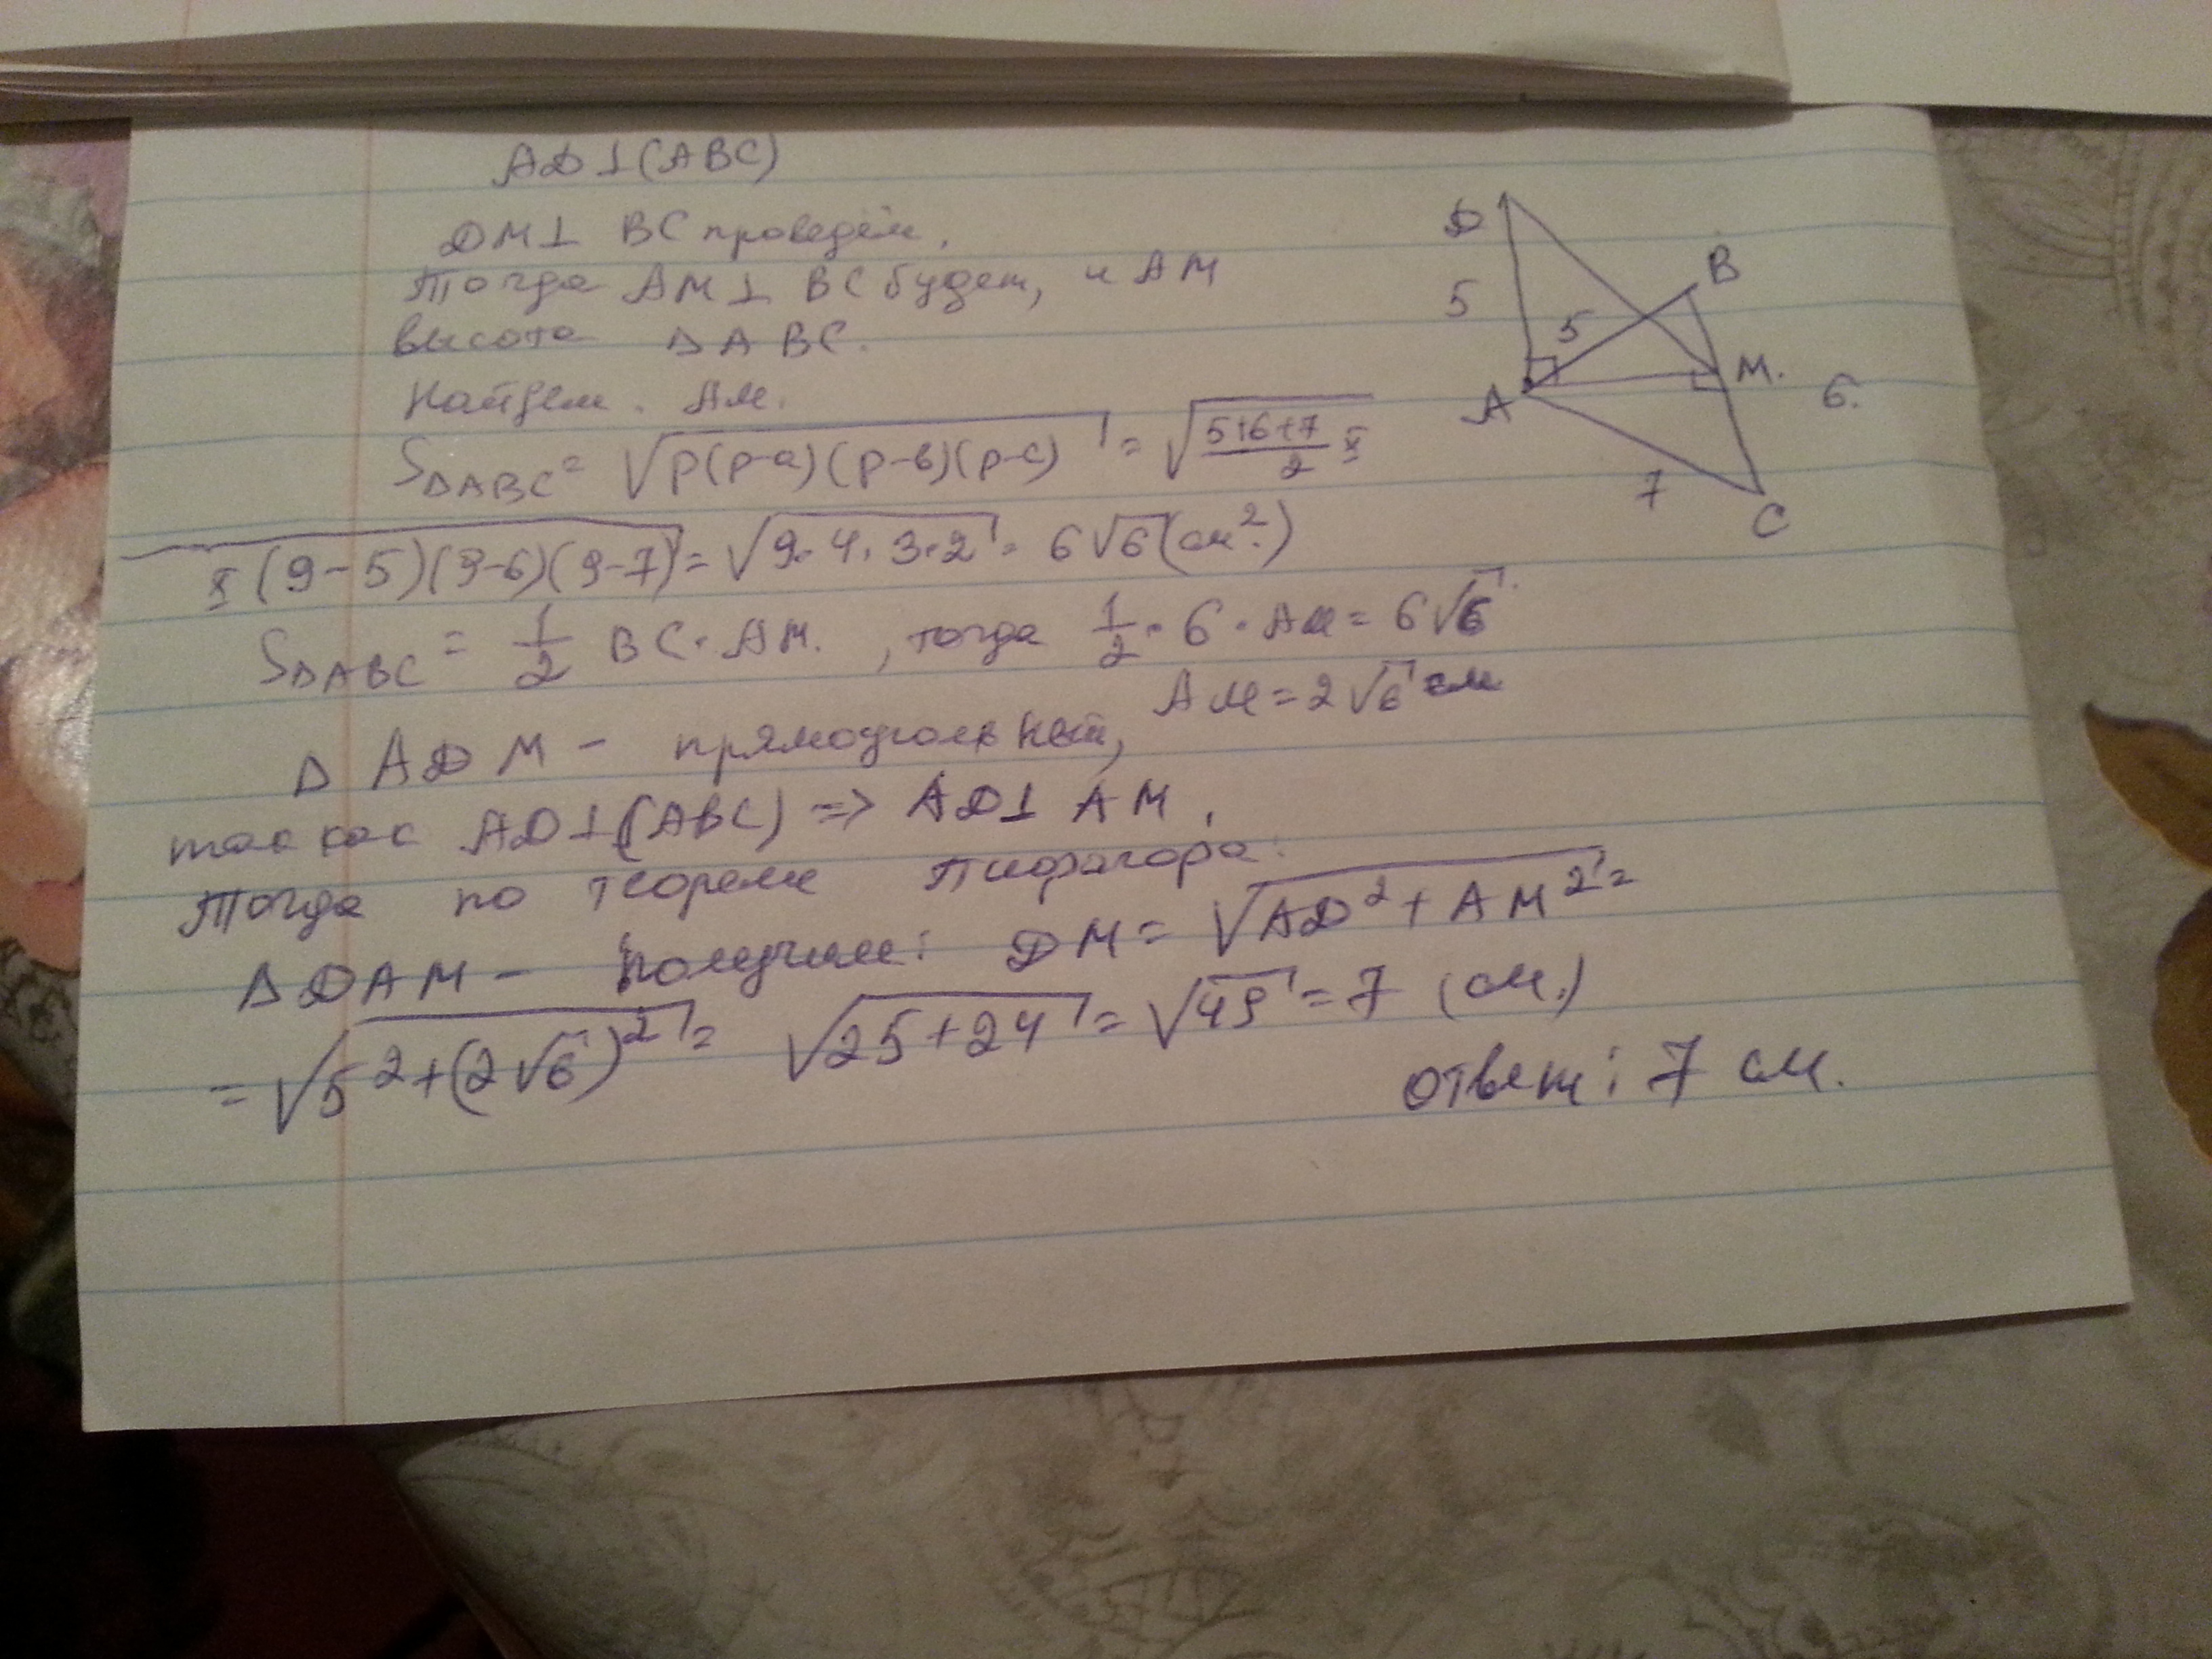 AD⊥(ABC)
DM⊥ BC проведём.
Тогда AM⊥ BC будет, и AM
высота ΔABC.
Найдем. AM.
S_ΔABC = √(p(p-a)(p-в)(p-c)) = √((5+6+7)/2 ×
× (9-5)(9-6)(9-7)) = √(9·4·3·2) = 6√6 (см²)
S_ΔABC = 1/2 BC·AM. , тогда 1/2·6·AM = 6√6
AM = 2√6 см
ΔADM – прямоугольный,
так как AD⊥(ABC) => AD⊥AM.
Тогда по теореме Пифагора:
ΔDAM – получим: DM = √(AD²+AM²) =
= √(5²+(2√6)²) = √(25+24) = √49 = 7 (см.)
ответ: 7 см.
D
B
5
5
A
M.
6.
7
C